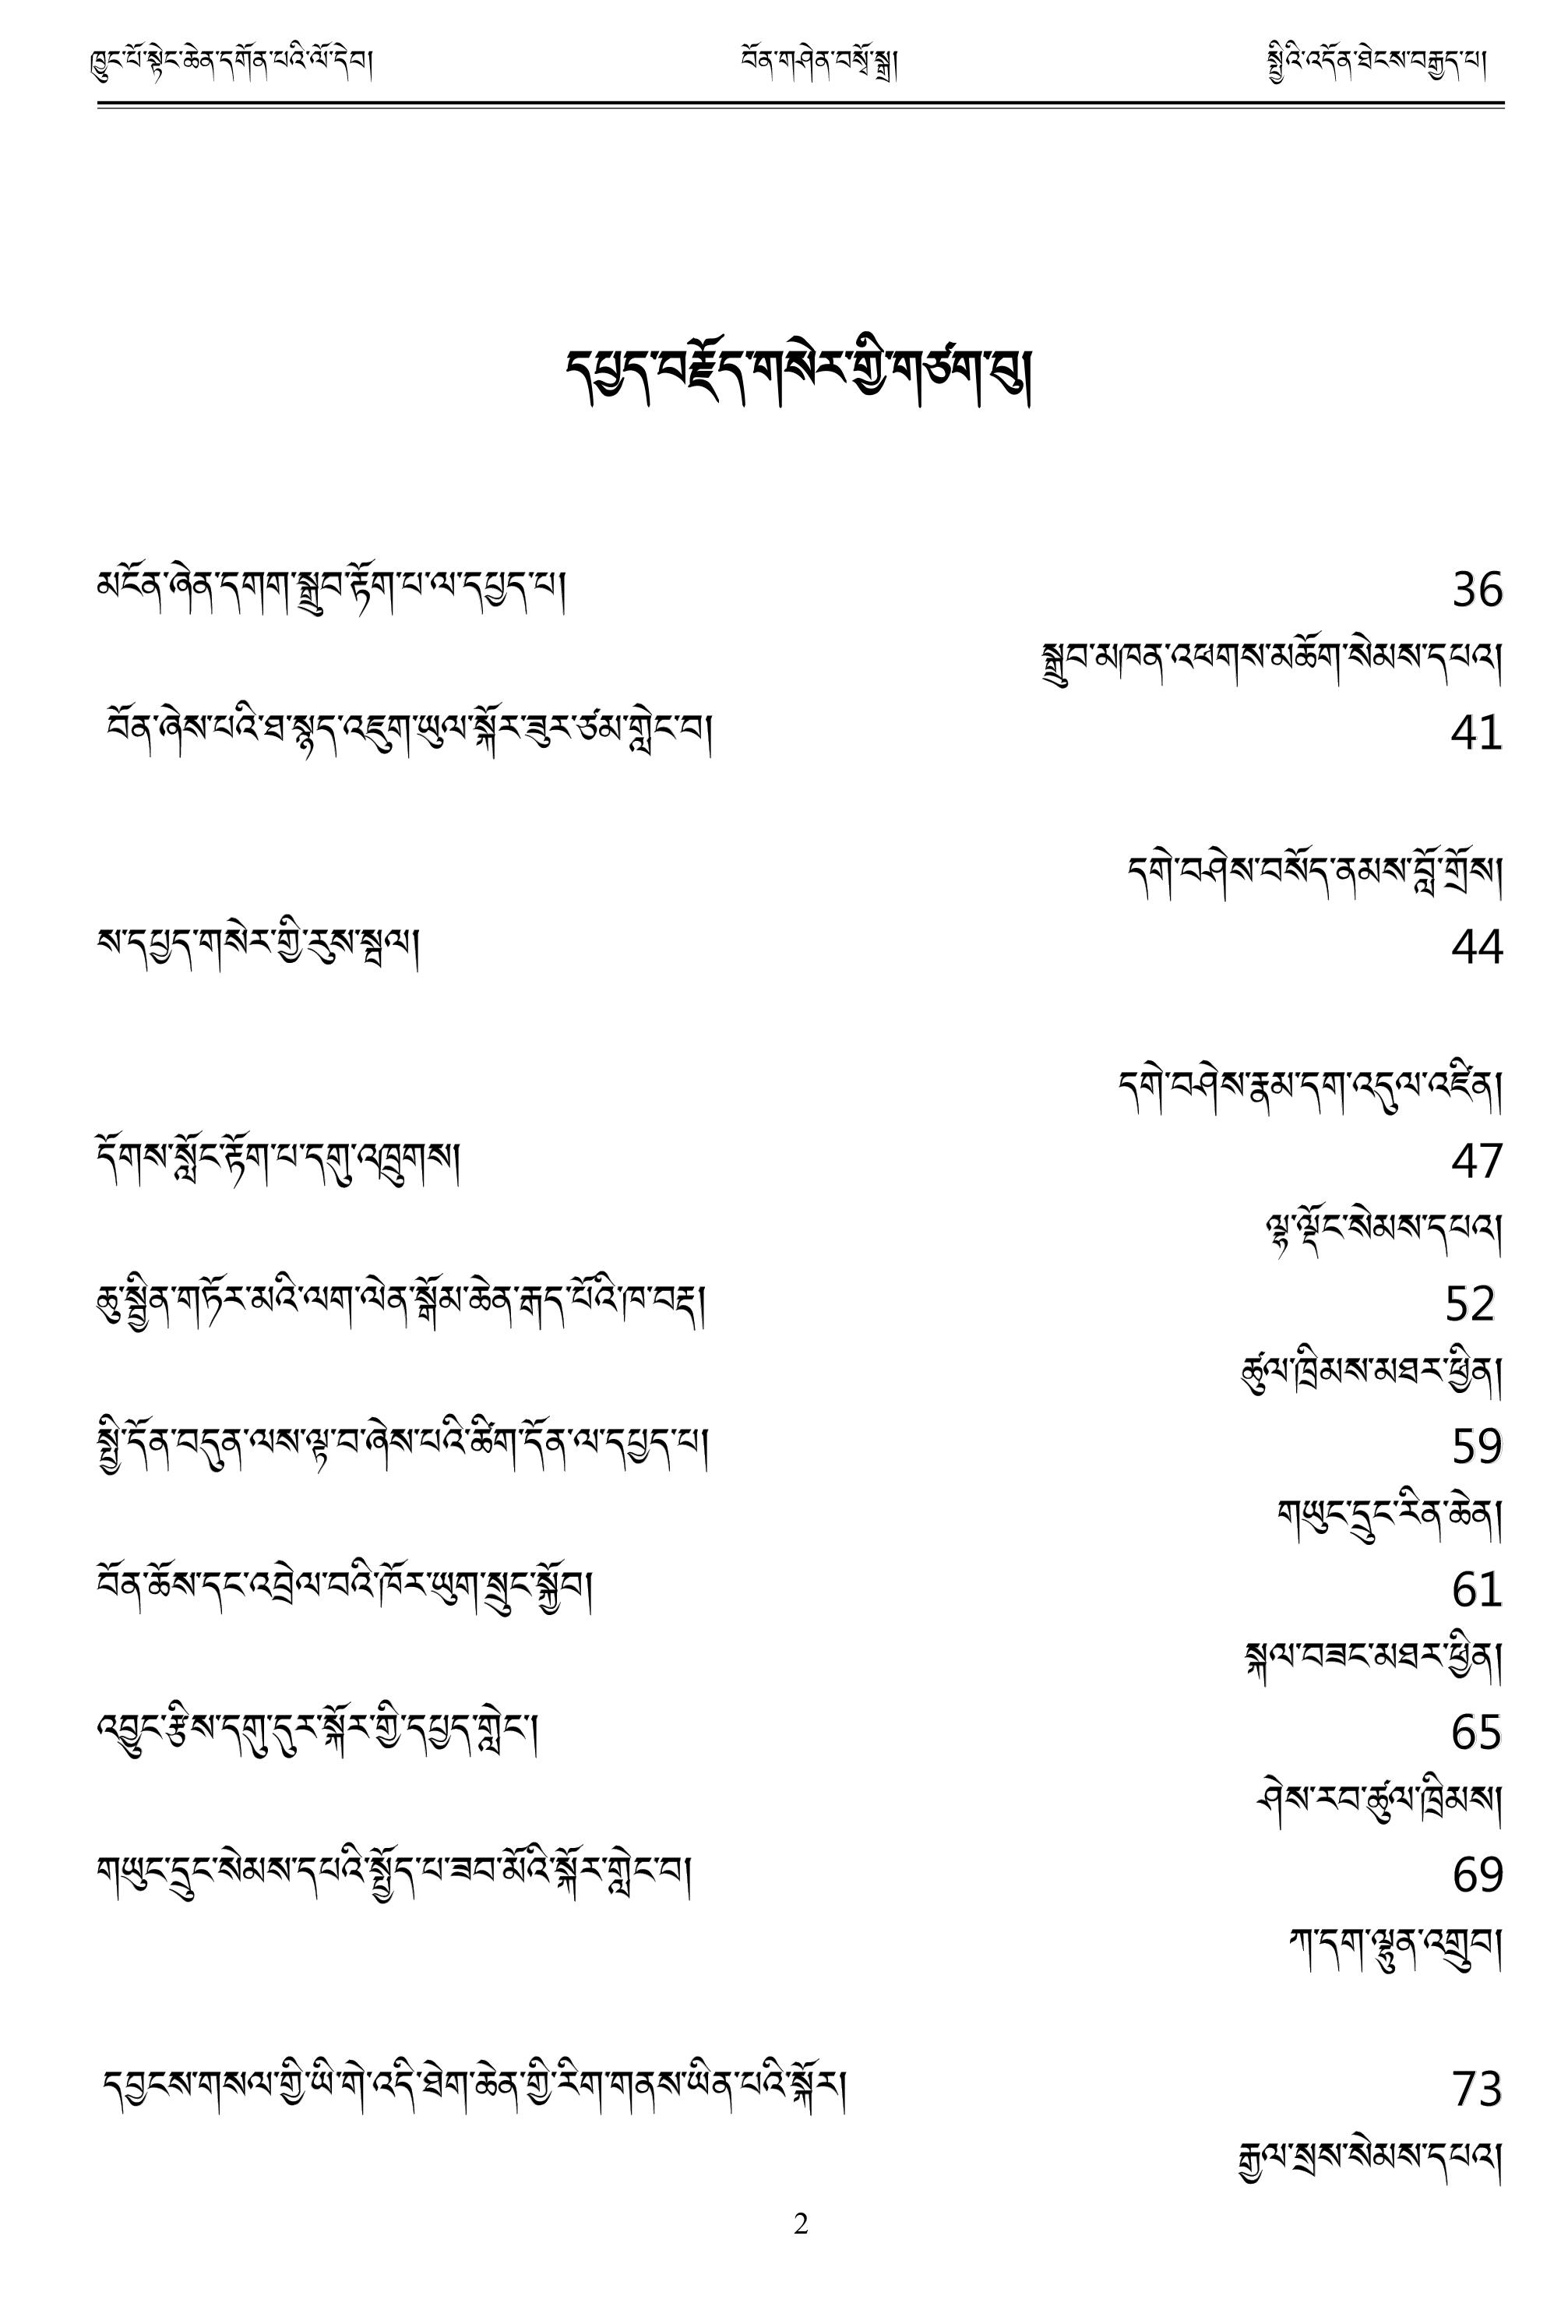 ཁྱུང་པོ་སྟེང་ཆེན་དགོན་པའི་ལོ་དེབ། བོན་གཤེན་བསྭོ་སྒྲ། སྤྱིའི་འདོན་ཐེངས་བརྒྱད་པ།
དཔྱད་བརྗོད་གསེར་གྱི་གཙག་བུ།
མངོན་ཞེན་དགག་སྒྲུབ་རྟོག་པ་ལ་དཔྱད་པ། 36
སྒྲུབ་མཁན་འཕགས་མཆོག་སེམས་དཔའ།
བོན་ཞེས་པའི་ཐ་སྙད་འཇུག་ཡུལ་སྐོར་ཟུར་ཙམ་གླེང་བ། 41
དགེ་བཤེས་བསོད་ནམས་བློ་གྲོས།
ས་དཔྱད་གསེར་གྱི་རུས་སྦལ། 44
དགེ་བཤེས་རྣམ་དག་འདུལ་འཛིན།
དོགས་སློང་རྟོག་པ་དགུ་འཁྲུགས། 47
ལྷ་ལྡོང་སེམས་དཔའ།
ཆུ་སྦྱིན་གཏོར་མའི་ལག་ལེན་སྒོམ་ཆེན་རྒད་པོའི་ཁ་བརྡ། 52
ཚུལ་ཁྲིམས་མཐར་ཕྱིན།
སྤྱི་དོན་བདུན་ལས་ལྟ་བ་ཞེས་པའི་ཚིག་དོན་ལ་དཔྱད་པ། 59
གཡུང་དྲུང་རིན་ཆེན།
བོན་ཆོས་དང་འབྲེལ་བའི་ཁོར་ཡུག་སྲུང་སྐྱོབ། 61
སྐལ་བཟང་མཐར་ཕྱིན།
འབྱུང་རྩིས་དགུ་དུར་སྐོར་གྱི་དཔྱད་གླེང་། 65
ཤེས་རབ་ཚུལ་ཁྲིམས།
གཡུང་དྲུང་སེམས་དཔའི་སྤྱོད་པ་ཟབ་མོའི་སྐོར་གླེང་བ། 69
ཀ་དག་ལྷུན་འགྲུབ།
དབྱངས་གསལ་གྱི་ཡི་གེ་འདི་ཐེག་ཆེན་གྱི་རིག་གནས་ཡིན་པའི་སྐོར། 73
རྒྱལ་སྲས་སེམས་དཔའ།
2